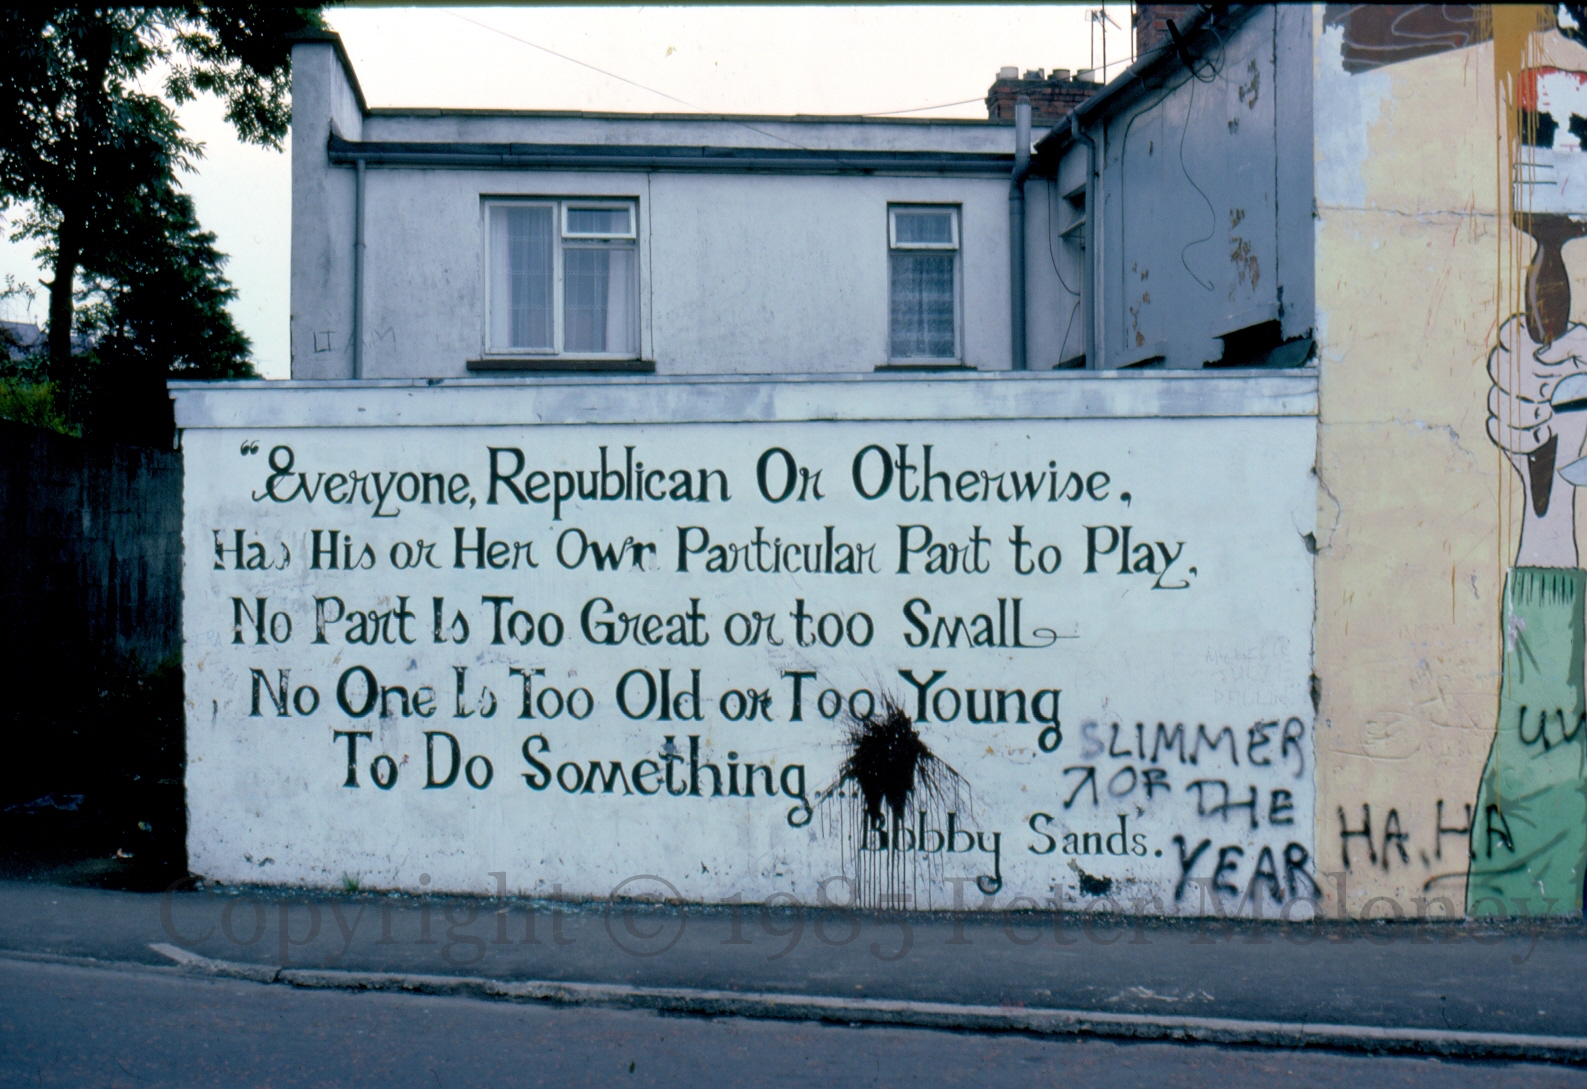 “Everyone, Republican Or Otherwise,
Has His or Her Own Particular Part to Play.
No Part Is Too Great or too Small
No One Is Too Old or Too Young
To Do Something....
Bobby Sands.
SLIMMER
OF THE
YEAR
HA, HA
Copyright © 1985 Peter Moloney